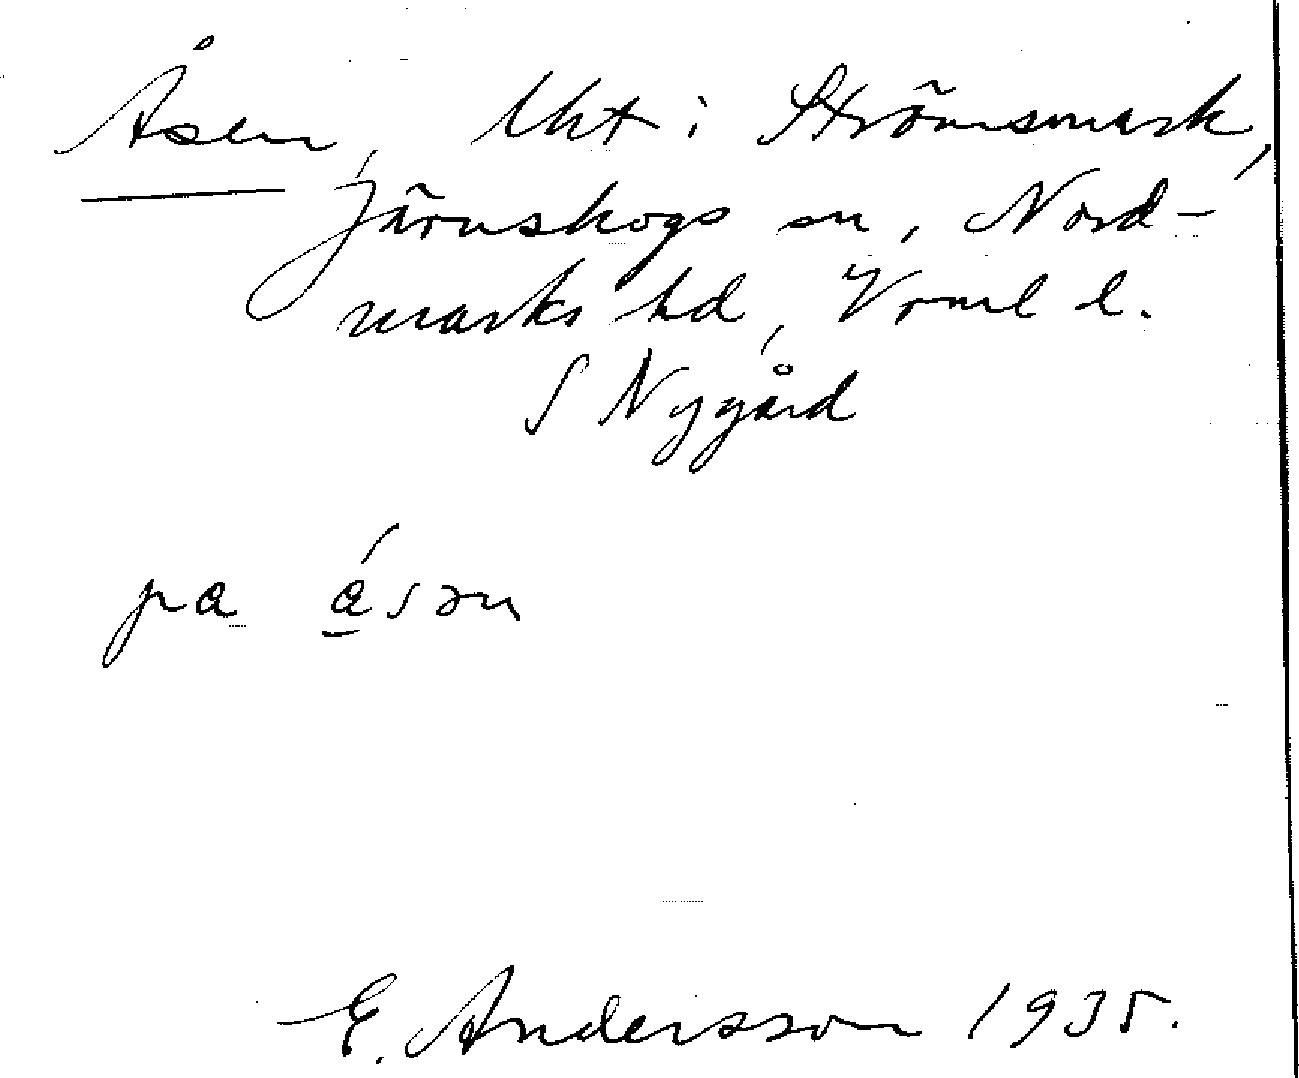 Åsen, lht i Strömsmark,
Järnskogs sn, Nord-
marks hd, Vrml l.
S Nygård
pa ásən
E. Andersson 1935.